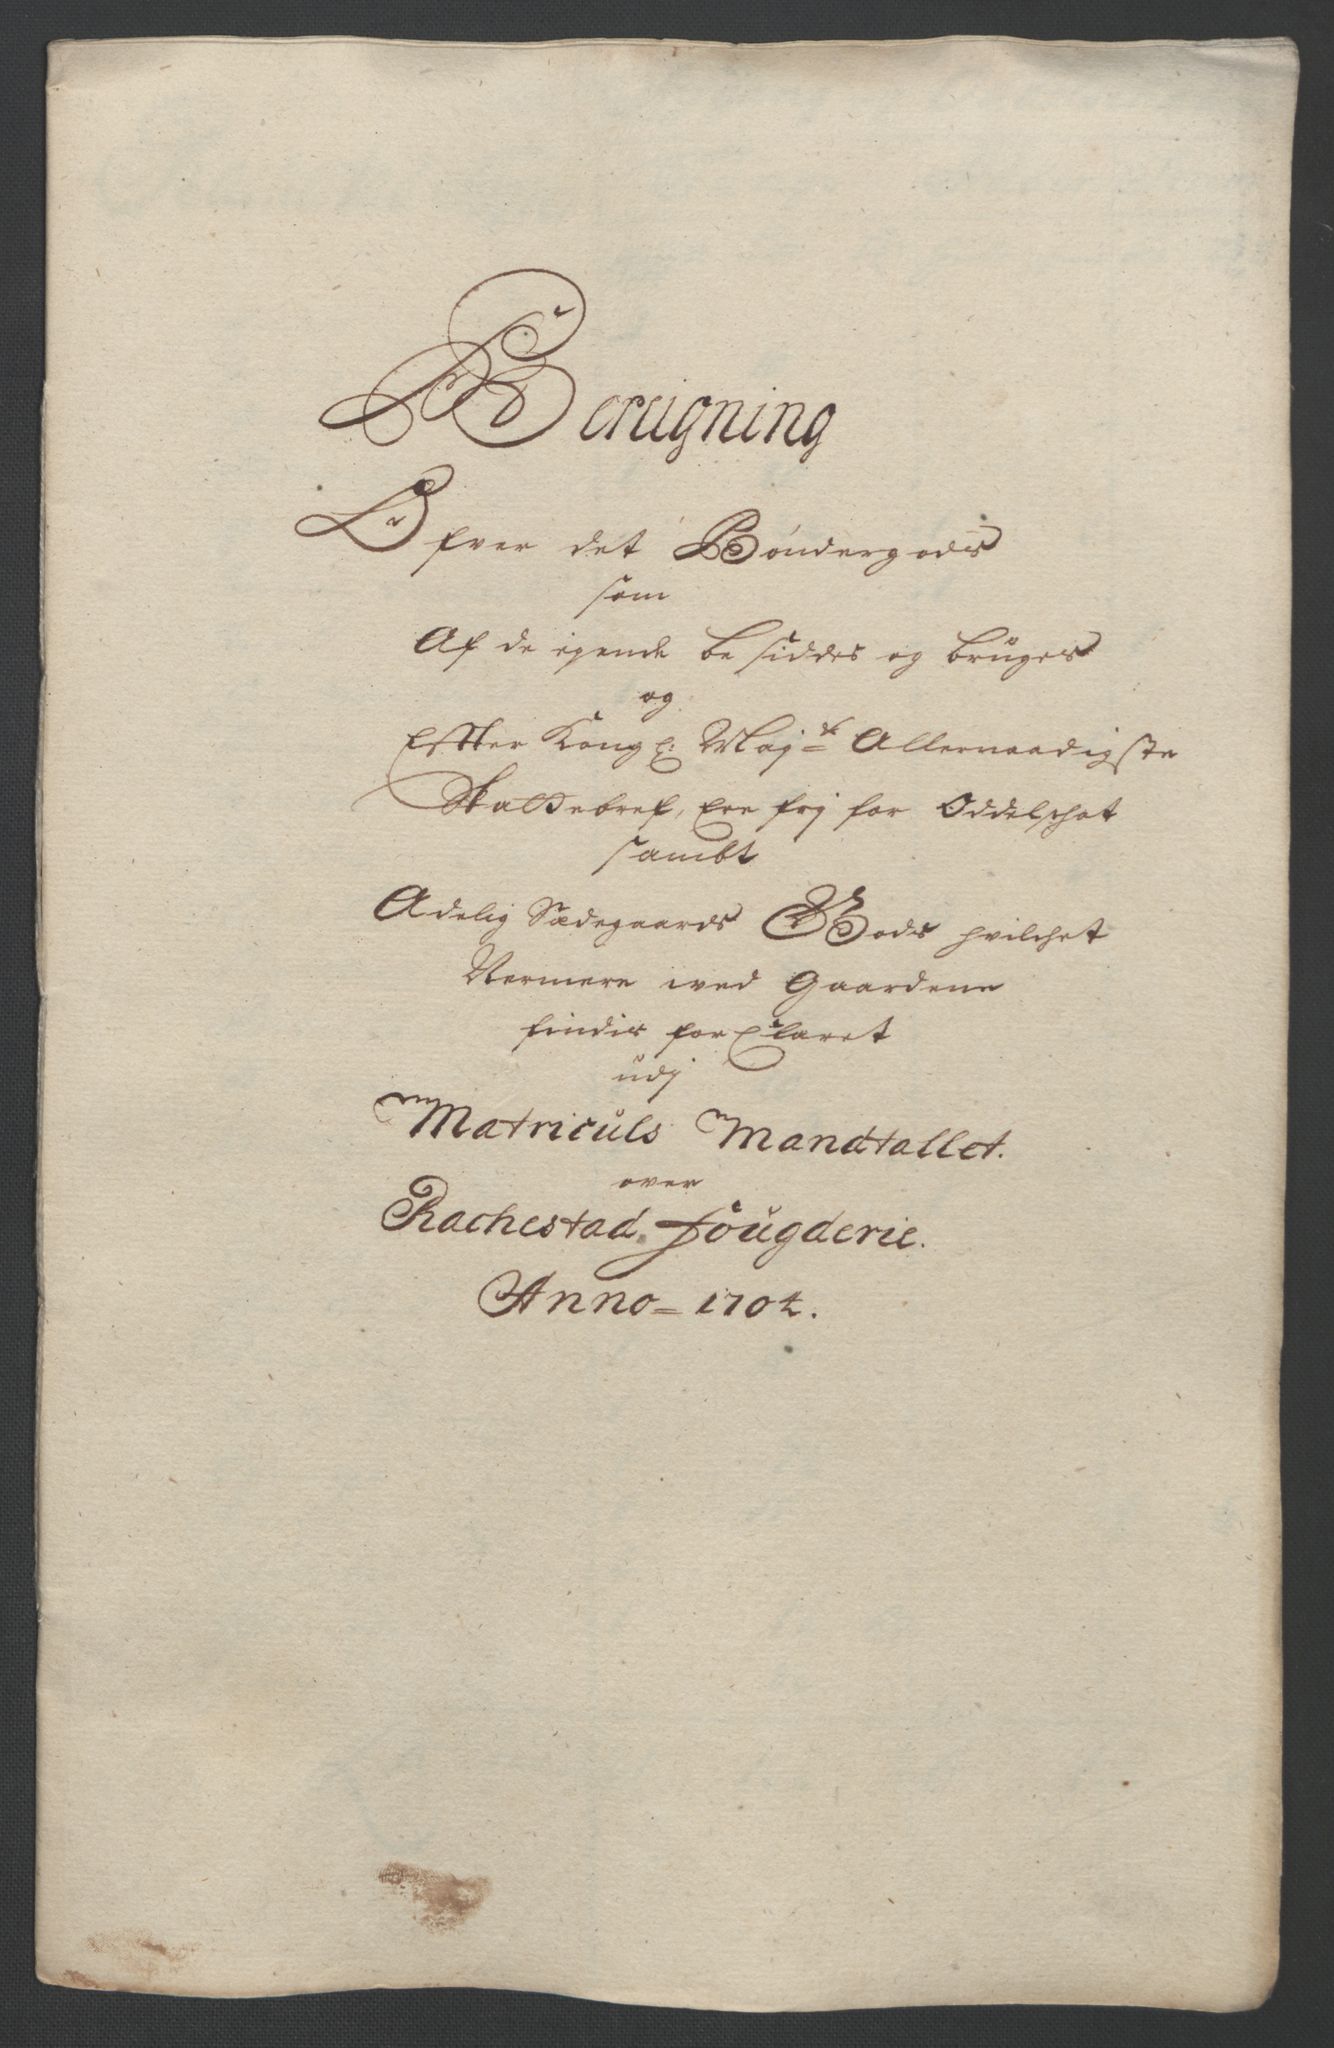 Bereigning
Ofver det Bøndergods
som
Af de egende besiddes og bruges
og
Effter Kongl: Maj:ts Allernaadigste
Skattebref, Ere frj for Oddelschat
sambt
Adelig Sædegaards Gods hvilchet
Nermere wed Gaardene
findis forClaret
udj
Matriculs Mandtallet.
over
Rachestad Fougderie.
Anno - 1704.